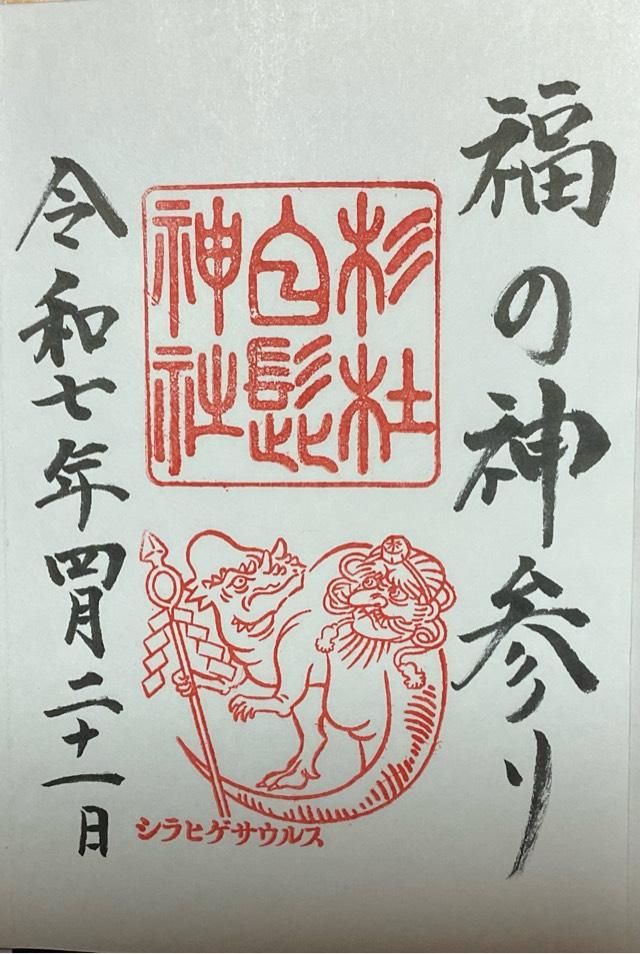 福の神参り
杉杜
白髭
神社
シラヒゲサウルス
令和七年四月二十一日